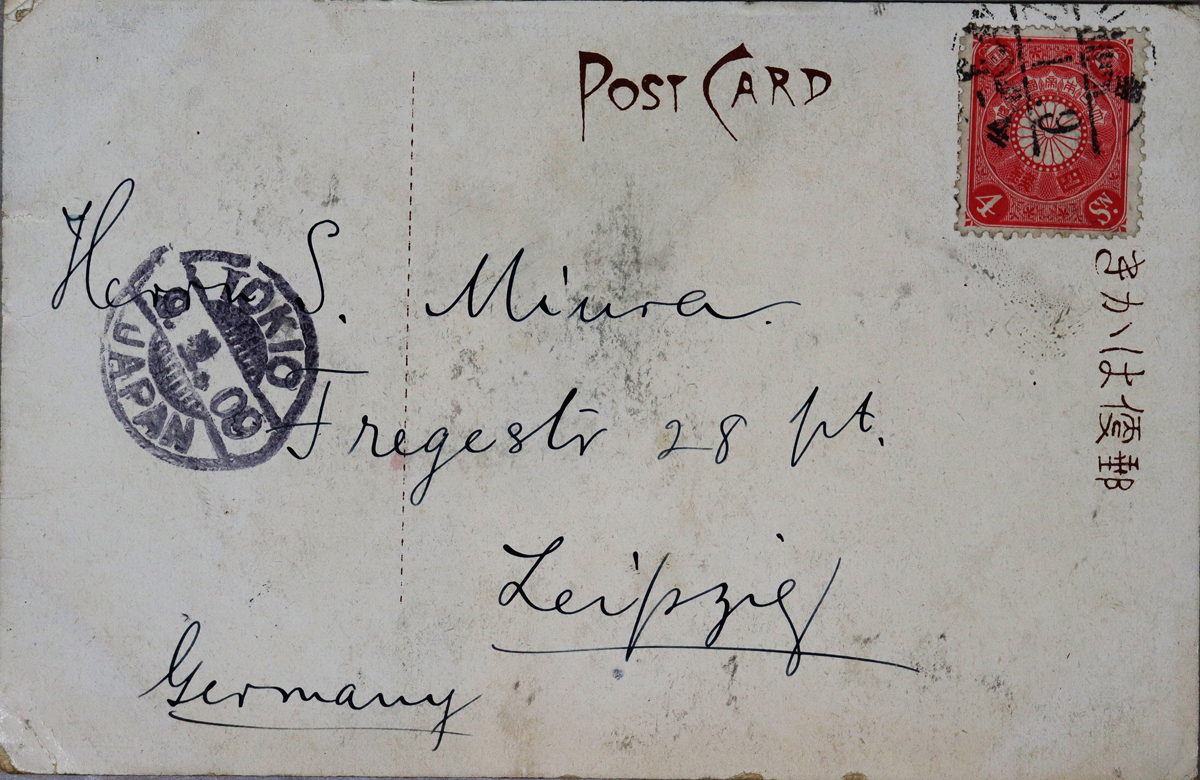 POST CARD
4 Sn.
きかゝは便郵
Herrn S. Miura.
TOKIO
9. 1. 09
JAPAN
Fregestr 28 pt.
Leipzig
Germany